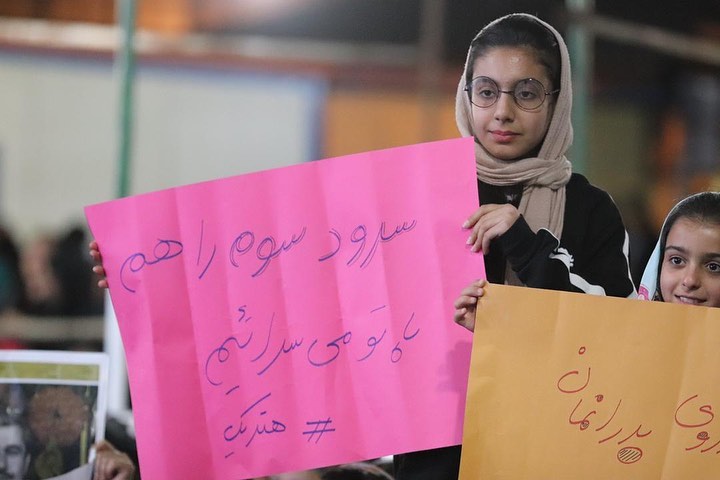 سرود سوم را هم
با تو می سرائیم
# هتریک
پدرانمان